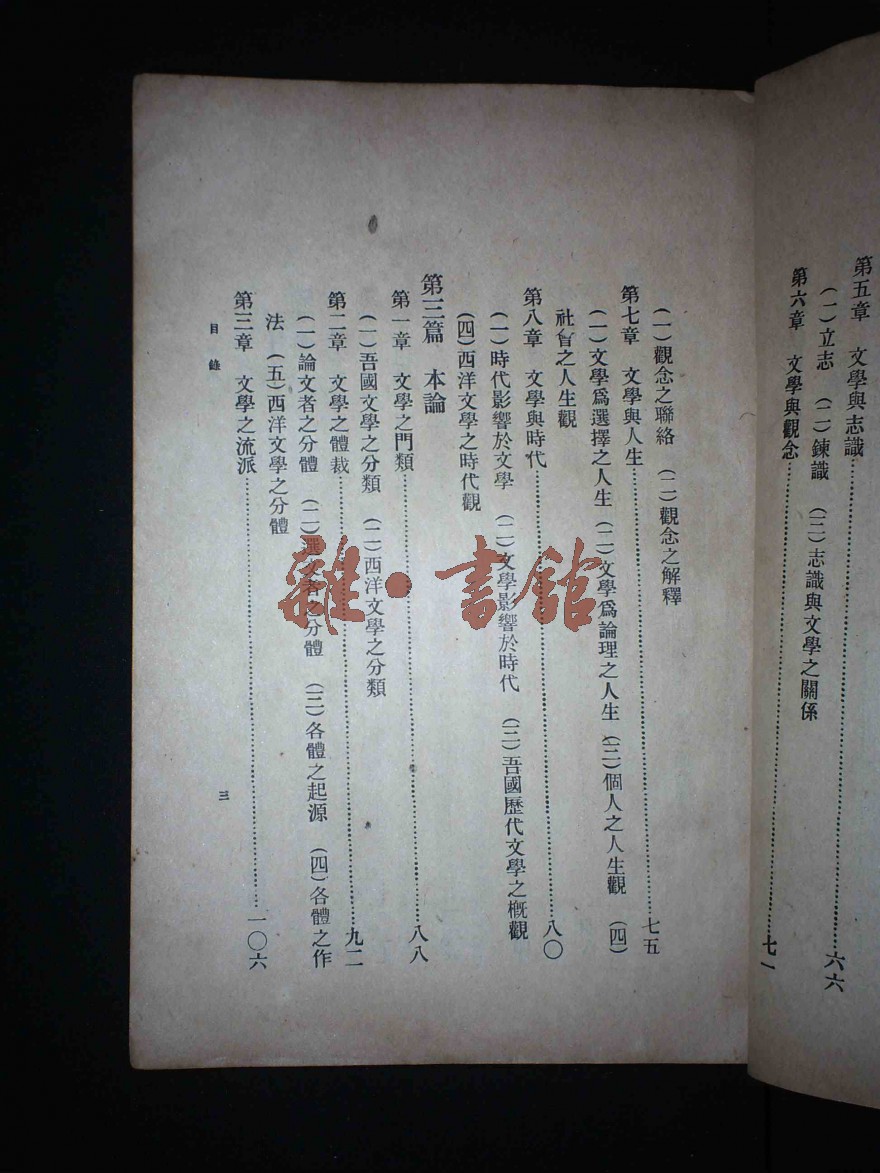 第五章　文學與志識……六六
（一）立志　（二）鍊識　（三）志識與文學之關係
第六章　文學與觀念……七一
（一）觀念之聯絡　（二）觀念之解釋
第七章　文學與人生……七五
（一）文學爲選擇之人生　（二）文學爲論理之人生　（三）個人之人生觀　（四）
社會之人生觀
第八章　文學與時代……八〇
（一）時代影響於文學　（二）文學影響於時代　（三）吾國歷代文學之概觀
（四）西洋文學之時代觀
第三篇　本論
第一章　文學之門類……八八
（一）吾國文學之分類　（二）西洋文學之分類
第二章　文學之體裁……九二
（一）論文者之分體　（二）選文者之分體　（三）各體之起源　（四）各體之作
法　（五）西洋文學之分體
第三章　文學之流派……一〇六
目錄
三
雜·書館